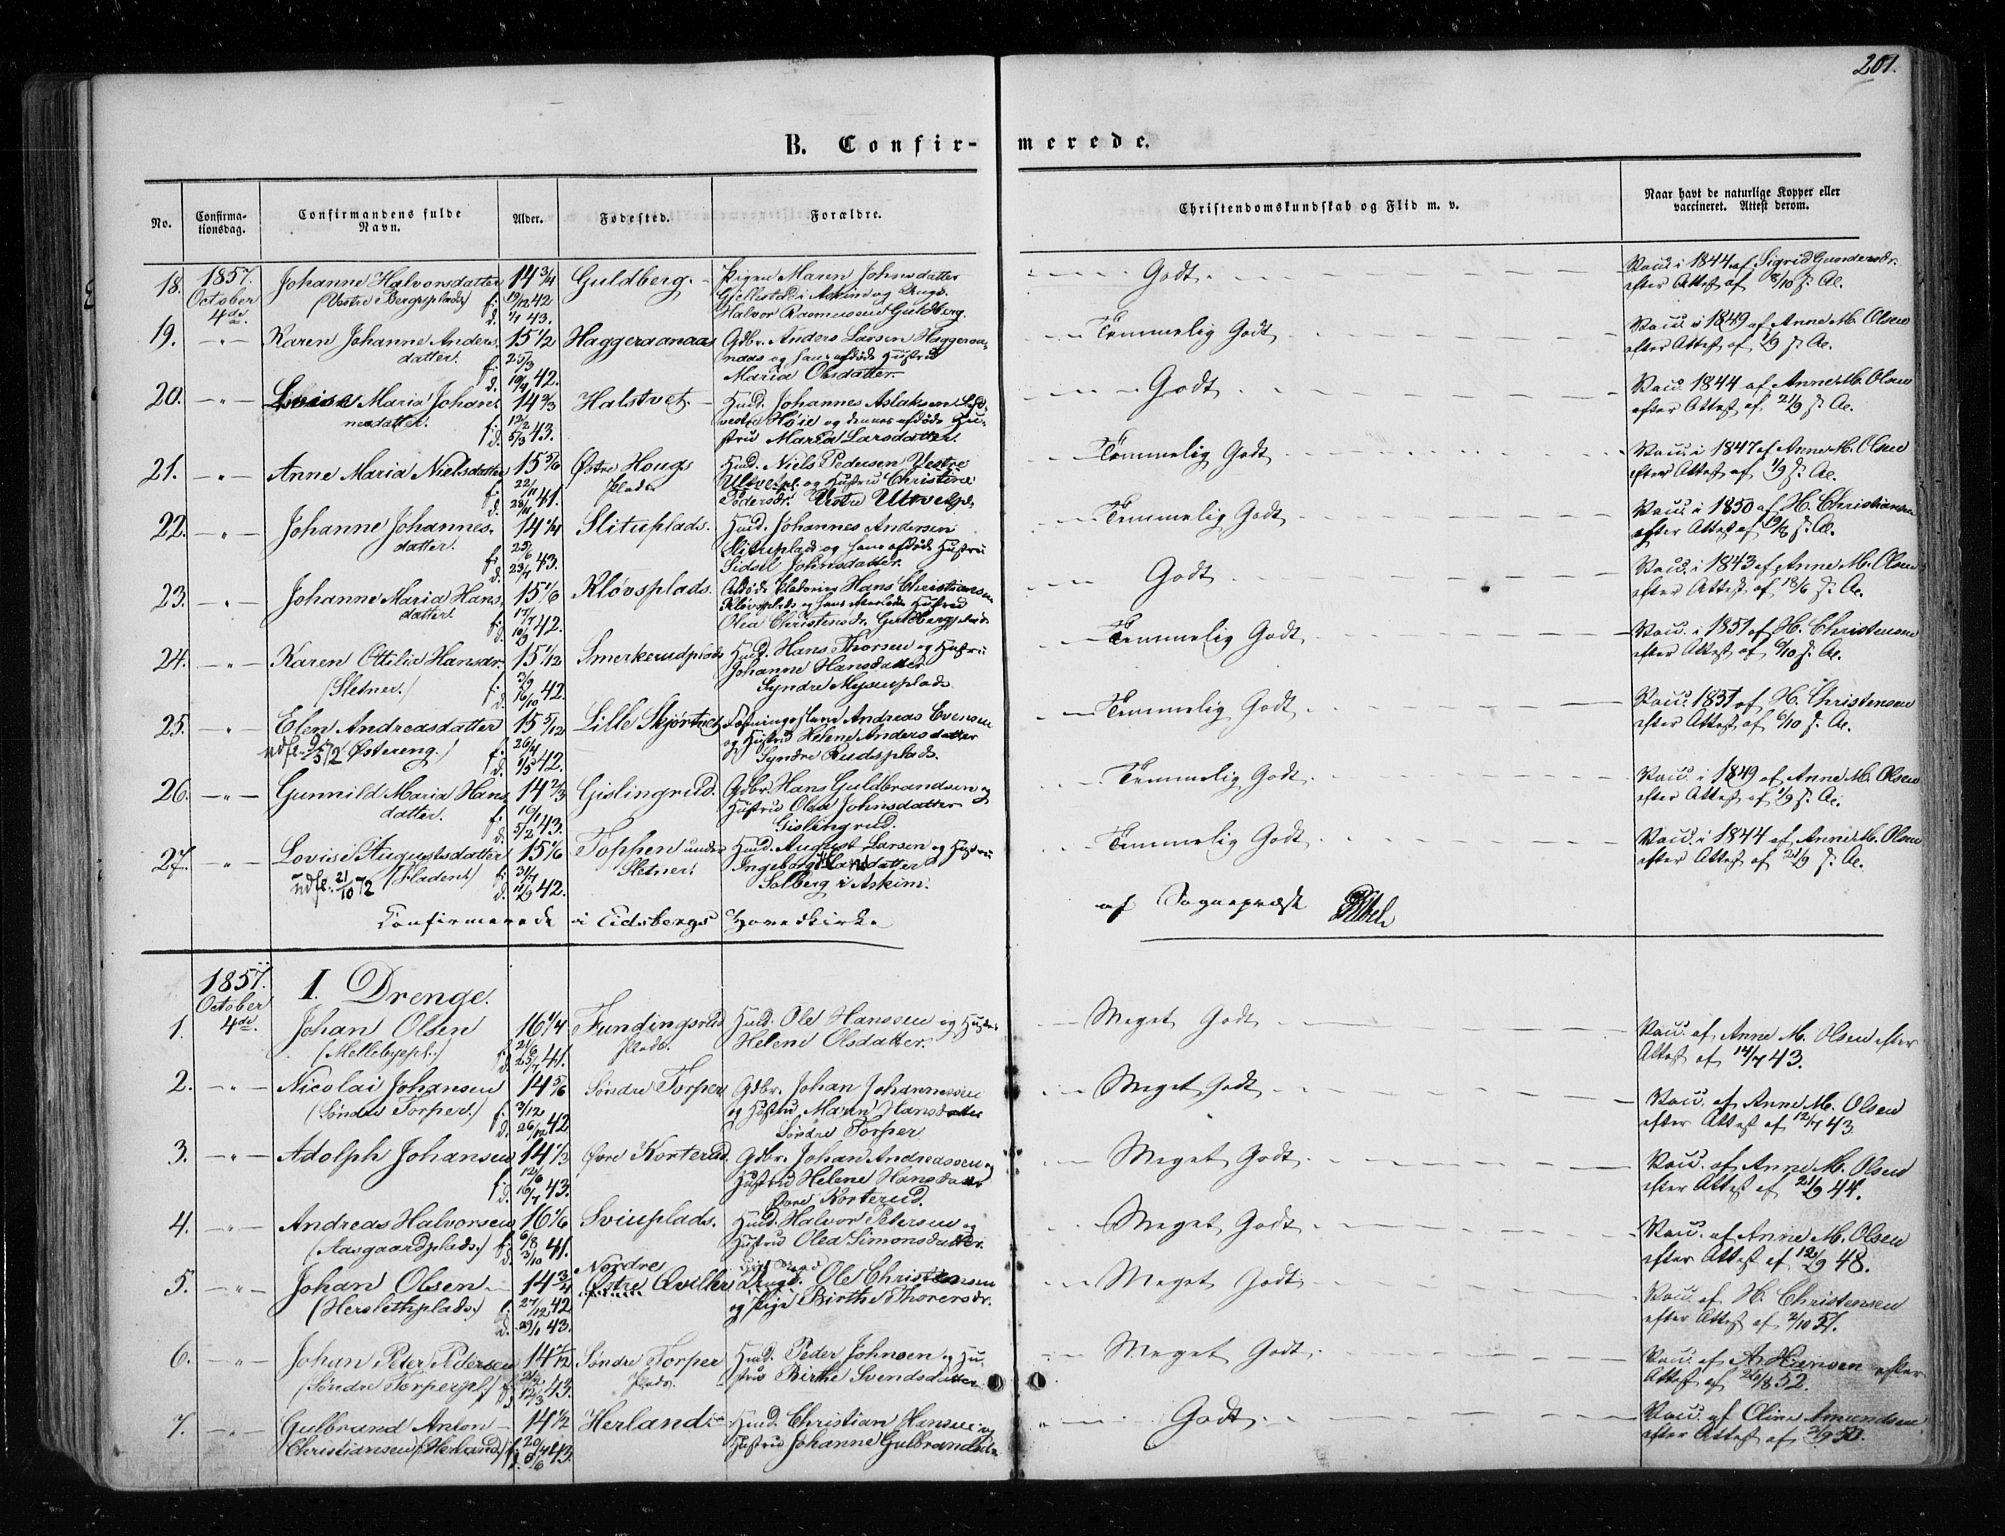 201.
B. Confirmerede.
No. Confirmationsdag. Confirmandens fulde Navn. Alder. Fødested. Forældre. Christendomskundskab og Flid m. v. Naar havt de naturlige Kopper eller vaccineret. Attest derom.
18. 1857. October 4de. Johanne Halvorsdatter 14 3/4 Guldberg. Pigen Maren Johnsdatter Godt. Vacc. i 1844 af Sigrid Gundersdr.
(Vestre Bergsplads) f. 19/12 42 Gjellestad i Askim og Ungk. efter Attest af
d. 1/1 43. Halvor Rasmussen Guldberg.
19. Karen Johanne Anders 15 1/2 Haggeraanaas Gdbr. Anders Larsen Haggeraa- Temmelig Godt Vacc. i 1849 af Anne M. Olsen
datter. f. 25/3 naas og hans afdøde Hustru efter Attest af 1/9 s. A.
d. 19/4 42. Maria Olsdatter.
20. Lovise Maria Johan- 14 2/3 Halstvet. Huusm. Johannes Aslaksen Eid. Godt Vacc. 1844 af Anne M. Olsen
nesdatter. f. 12/2 vestre Høie og dennes afdøde Hu- efter Attest af 21/9 s. A.
d. 5/3 43. stru Maria Larsdatter.
21. Anne Maria Nielsdatter 15 5/6 Østre Hougs Huusm. Niels Pedersen Vestre Temmelig Godt Vacc. i 1847 af Anne M. Olsen
f. 22/11 Plads. Ulvetpl. og Hustru Christine efter Attest af 1/9 s. A.
d. 41. Pedersdr. Vestre Ulvetpl.
22. Johanne Johannes- 14 1/4 Slituplads. Huusm. Johannes Andersen Temmelig Godt Vacc. i 1850 af H. Christiansen
datter. f. 25/6 Slituplads og hans afdøde Hustru efter Attest af
d. 23/7 43. Sidsel Johnsdatter.
23. Johanne Maria Hans- 15 1/6 Kløvsplads. Afdøde Hans Christiansen Godt Vacc. i 1843 af Anne M. Olsen
datter. f. 17/7 Kløvsplads og hans efterladte Hustru efter Attest af 18/6 s. A.
d. 42. Olea Christensdr. Guldbergsplads
24. Karen Otilie Hansdr. 15 1/12 Smerkerudplads Huusm. Hans Thorsen og Hustru Temmelig Godt Vacc. i 1851 af H. Christensen
(Sletner.) f. 3/9 Johanne Hansdatter efter Attest af 6/10 s. A.
d. 16/10 42. Syndre Mysenplads
25. Elen Andreasdatter 15 5/12 Lille Skjørtvet Andreas Evensen Temmelig Godt Vacc. 1851 af H. Christensen
udfl. (Østereng.) f. 26/4 og Hustru Helene Andersdatter efter Attest af 6/10 s. A.
d. 1/5 42. Syndre Rudsplads.
26. Gunnild Maria Hans 14 2/3 Gislingrud. Gdbr. Hans Guldbrandsen og Temmelig Godt Vacc. i 1849 af Anne M. Olsen
datter. f. 16/1 Hustru Olea Johnsdatter efter Attest af 1/9 s. A.
d. 5/2 43. Gislingrud.
27. Lovise Augustsdatter 15 1/6 Toppen under Huusm. August Larsen og Hustru Temmelig Godt Vacc. i 1844 af Anne M. Olsen
udfl. 21/10 72 (Fladent.) f. 31/7 Sletner. Ingeborg Hansdatter efter Attest af 21/9 s. A.
d. 42. Solberg i Askim.
Confirmerede i Eidsbergs Hovedkirke af Sognepræst
1857. October I. Drenge.
1. 4de. Johan Olsen 16 1/4 Fundingsrud Huusm. Ole Hanssen og Hustru Meget Godt Vacc. af Anne M. Olsen efter
(Mellebyspl.) f. 21/6 Plads. Helene Olsdatter. Attest af 14/7 43.
d. 25/7 41.
2. Nicolai Johansen 14 5/6 Søndre Torper Gdbr. Johan Johannessen Meget Godt Vacc. af Anne M. Olsen
(Søndre Torper.) f. 3/12 og Hustru Maren Hansdatter efter Attest af 12/7 43
d. 26/12 42. Søndre Torper
3. Adolph Johansen 14 1/3 Øvre Korterud Gdbr. Johan Andreassen og Meget Godt Vacc. af Anne M. Olsen
f. 12/6 Hustru Helene Hansdatter efter Attest af 21/9 44.
d. 16/7 43. Øvre Korterud.
4. Andreas Halvorsen 16 1/6 Sviuplads. Huusm. Halvor Petersen og Meget Godt Vacc. af Anne M. Olsen
(Aasgaardplads.) f. 6/8 Hustru Olea Simonsdatter. efter Attest af 12/9 48.
d. 3/10 41.
5. Johan Olsen 14 3/4 Nordre Østre Qviller Ungk. Ole Christensen Meget Godt Vacc. af H. Christensen
(Herslethplads.) f. 27/12 42 og Pige Birthe Thorersdr. efter Attest af 2/10 51.
d. 29/1 43.
6. Johan Peter Pedersen 14 7/12 Søndre Torper Huusm. Peder Johnsen og Hu- Meget Godt Vacc. af A Hansen efter
(Søndre Torperpl.) f. 21/2 Plads. stru Birthe Svendsdatter Attest af 52.
d. 12/3 43.
7. Gulbrand Anton 14 1/2 Herland Huusm. Christian Hansen og Godt Vacc. af Oline Amundsen
Christiansen (Herland) f. 20/4 Hustru Johanne Gulbrandsdr. efter Attest af 2/9 50.
d. 6/6 43.